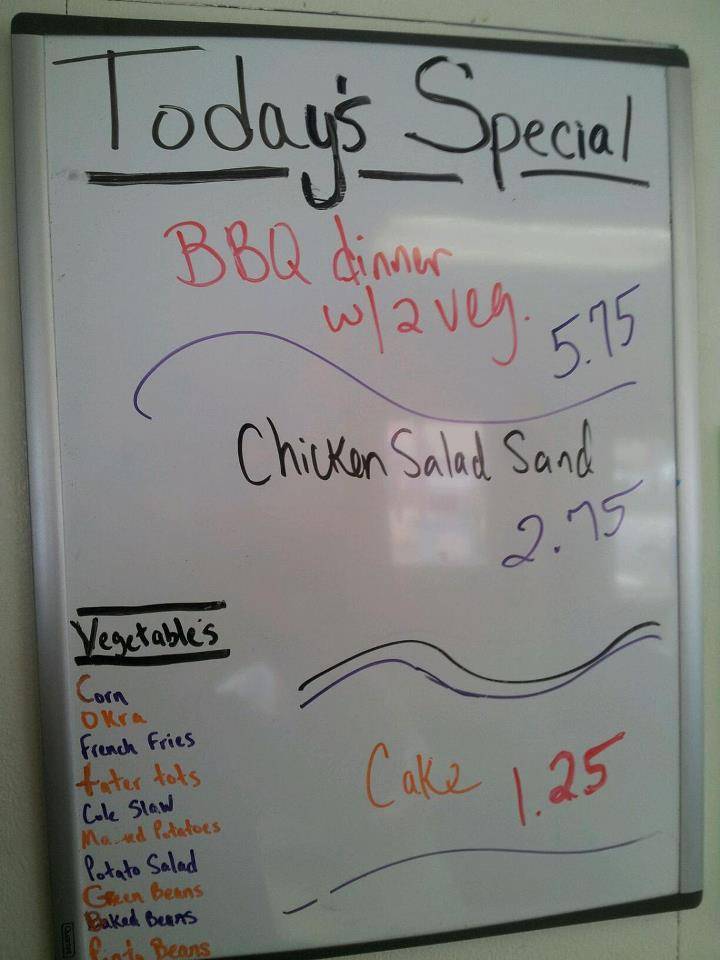 Today's Special
BBQ dinner
w/2 veg.
5.75
Chicken Salad Sand
2.75
Vegetable's
Corn
Okra
French Fries
tater tots
Cole Slaw
Potatoes
Potato Salad
Green Beans
Baked Beans
Pinto Beans
Cake 1.25